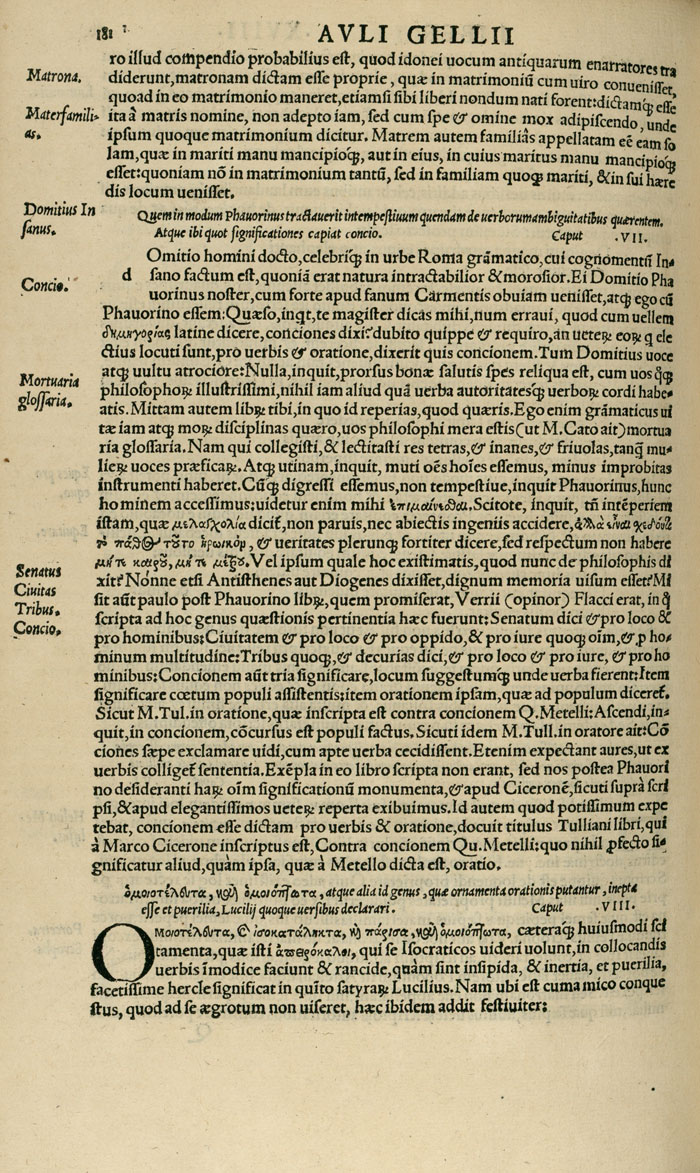 181
AVLI GELLII
ro illud compendio probabilius est, quod idonei uocum antiquarum enarratores tra
Matrona.
diderunt, matronam dictam esse proprie, quæ in matrimoniū cum uiro conuenisset,
quoad in eo matrimonio maneret, etiamsi sibi liberi nondum nati forent: dictamq́; esse
Materfamili-
as.
ita à matris nomine, non adepto iam, sed cum spe & omine mox adipiscendo, unde
ipsum quoque matrimonium dicitur. Matrem autem familiâs appellatam eē eam so
lam, quæ in mariti manu mancipioq́;, aut in eius, in cuius maritus manu mancipioq́;
esset: quoniam nō in matrimonium tantū, sed in familiam quoq; mariti, & in sui hære
dis locum uenisset.
Domitius In
sanus.
Quem in modum Phauorinus tractauerit intempestiuum quendam de uerborum ambiguitatibus quærentem.
Atque ibi quot significationes capiat concio. Caput .VII.
Omitio homini docto, celebriq́; in urbe Roma grāmatico, cui cognomentū In-
d sano factum est, quoniā erat natura intractabilior & morosior. Ei Domitio Pha
Concio.
uorinus noster, cum forte apud fanum Carmentis obuiam uenisset, atq́; ego cū
Phauorino essem: Quæso, inqt, te magister dicas mihi, num erraui, quod cum uellem
δημηγορίας latine dicere, conciones dixi? dubito quippe & requiro, an ueterꝫ eorꝫ q ele
ctius locuti sunt, pro uerbis & oratione, dixerit quis concionem. Tum Domitius uoce
atq́; uultu atrociore: Nulla, inquit, prorsus bonæ salutis spes reliqua est, cum uos q́q́;
Mortuaria
glossaria.
philosophorꝫ illustrissimi, nihil iam aliud quā uerba autoritatesq́; uerborꝫ cordi habe-
atis. Mittam autem librꝫ tibi, in quo id reperias, quod quæris. Ego enim grāmaticus ui
tæ iam atq́; morꝫ disciplinas quæro, uos philosophi mera estis (ut M. Cato ait) mortua
ria glossaria. Nam qui collegisti, & lectitasti res tetras, & inanes, & friuolas, tanq́ mu-
lierꝫ uoces præficarꝫ. Atq́; utinam, inquit, muti oēs hoīes essemus, minus improbitas
instrumenti haberet. Cūq́; digressi essemus, non tempestiue, inquit Phauorinus, hunc
hominem accessimus: uidetur enim mihi ἐπιμαίνεσθαι. Scitote, inquit, tñ intēperiem
istam, quæ μελαγχολία dicit̃, non paruis, nec abiectis ingeniis accidere, ἀλλὰ εἶναι σχεδόν τι
τὸ πάθος τοῦτο ἡρωικόν, & ueritates plerunq; fortiter dicere, sed respectum non habere
μήτε καιροῦ, μήτε μέτρου. Vel ipsum quale hoc existimatis, quod nunc de philosophis di
xit? Nonne etsi Antisthenes aut Diogenes dixisset, dignum memoria uisum esset? Mi
Senatus
Ciuitas
Tribus.
Concio.
sit aūt paulo post Phauorino librꝫ, quem promiserat, Verrii (opinor) Flacci erat, in q̃
scripta ad hoc genus quæstionis pertinentia hæc fuerunt: Senatum dici & pro loco &
pro hominibus: Ciuitatem & pro loco & pro oppido, & pro iure quoq; oīm, & p ho-
minum multitudine: Tribus quoq;, & decurias dici, & pro loco & pro iure, & pro ho
minibus: Concionem aūt tria significare, locum suggestumq́; unde uerba fierent: Item
significare cœtum populi assistentis: item orationem ipsam, quæ ad populum diceret̃.
Sicut M. Tul. in oratione, quæ inscripta est contra concionem Q. Metelli: Ascendi, in-
quit, in concionem, cōcursus est populi factus. Sicuti idem M. Tull. in oratore ait: Cō
ciones sæpe exclamare uidi, cum apte uerba cecidissent. Etenim expectant aures, ut ex
uerbis colliget̃ sententia. Exēpla in eo libro scripta non erant, sed nos postea Phauori
no desideranti harꝫ oīm significationū monumenta, & apud Ciceronē, sicuti suprà scri
psi, & apud elegantissimos ueterꝫ reperta exibuimus. Id autem quod potissimum expe
tebat, concionem esse dictam pro uerbis & oratione, docuit titulus Tulliani libri, qui
à Marco Cicerone inscriptus est, Contra concionem Qu. Metelli: quo nihil pfecto si-
gnificatur aliud, quàm ipsa, quæ à Metello dicta est, oratio.
ὁμοιοτέλευτα, καὶ ὁμοιόπτωτα, atque alia id genus, quæ ornamenta orationis putantur, inepta
esse et puerilia, Lucilij quoque uersibus declarari. Caput .VIII.
Ομοιοτέλευτα, & ἰσοκατάληκτα, καὶ πάρισα, καὶ ὁμοιόπτωτα, cæteraq́; huiusmodi sci
tamenta, quæ isti ἀπειρόκαλοι, qui se Isocraticos uideri uolunt, in collocandis
uerbis īmodice faciunt & rancide, quàm sint insipida, & inertia, et puerilia,
facetissime hercle significat in quīto satyrarꝫ Lucilius. Nam ubi est cum amico conque
stus, quod ad se ægrotum non uiseret, hæc ibidem addit festiuiter: